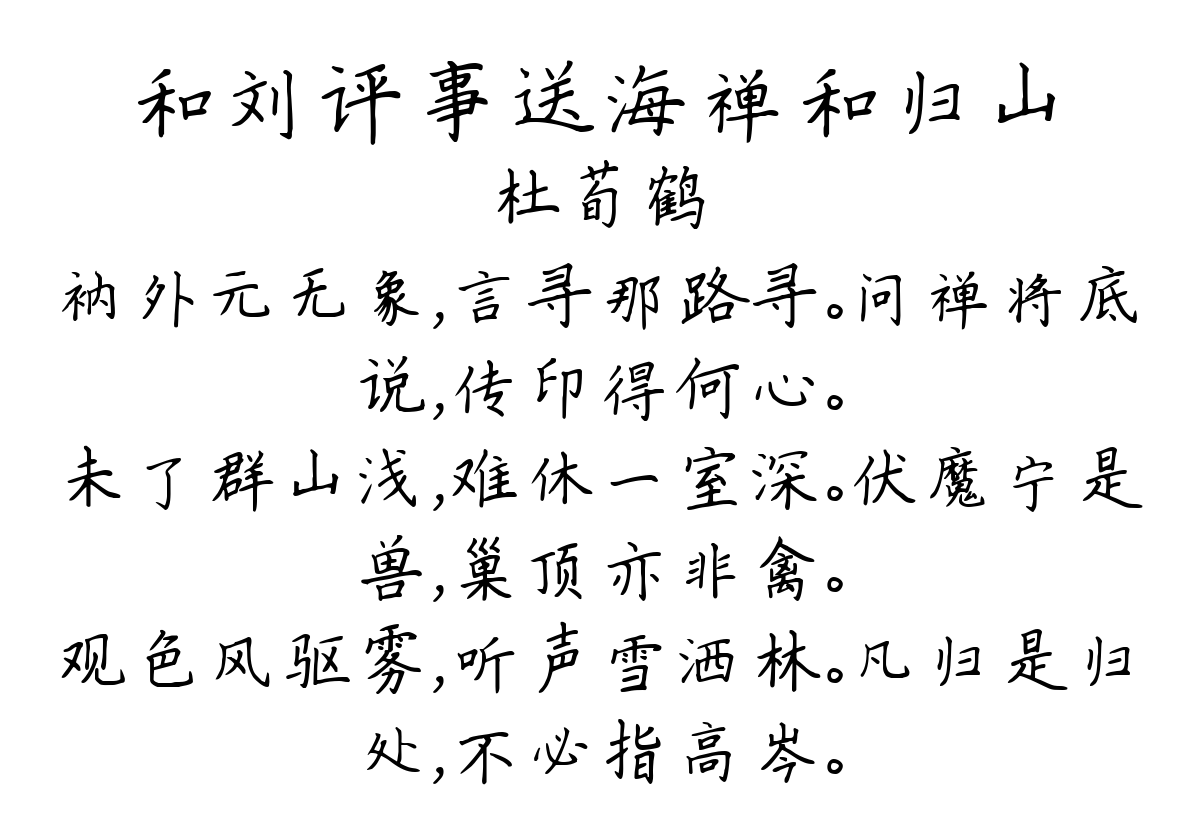 和刘评事送海禅和归山
杜荀鹤
衲外元无象,言寻那路寻。问禅将底
说,传印得何心。
未了群山浅,难休一室深。伏魔宁是
兽,巢顶亦非禽。
观色风驱雾,听声雪洒林。凡归是归
处,不必指高岑。